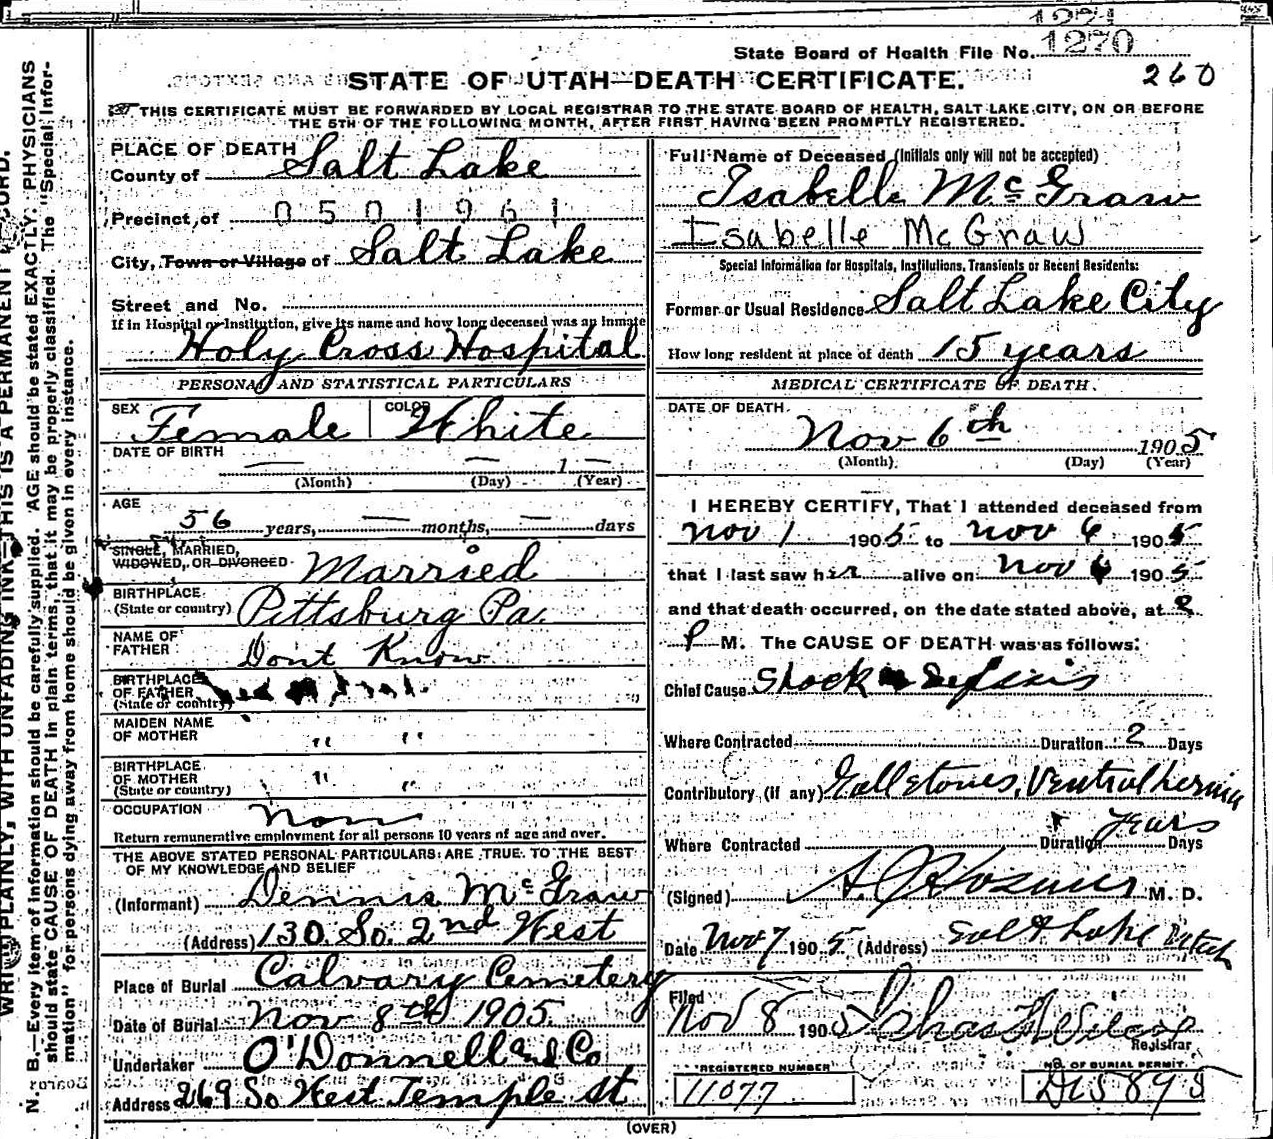 1271
State Board of Health File No. 1270
STATE OF UTAH—DEATH CERTIFICATE.
260
THIS CERTIFICATE MUST BE FORWARDED BY LOCAL REGISTRAR TO THE STATE BOARD OF HEALTH, SALT LAKE CITY, ON OR BEFORE
THE 5TH OF THE FOLLOWING MONTH, AFTER FIRST HAVING BEEN PROMPTLY REGISTERED.
PLACE OF DEATH
County of Salt Lake
Precinct of 0501961
City, Town or Village of Salt Lake
Street and No.
If in Hospital or Institution, give its name and how long deceased was an inmate
Holy Cross Hospital
PERSONAL AND STATISTICAL PARTICULARS
SEX Female COLOR White
DATE OF BIRTH
— — 1 —
(Month) (Day) (Year)
AGE
56 years, — months, — days
SINGLE, MARRIED,
WIDOWED, OR DIVORCED Married
BIRTHPLACE
(State or country) Pittsburg Pa.
NAME OF
FATHER Dont Know
BIRTHPLACE
OF FATHER
(State or country)
MAIDEN NAME
OF MOTHER " "
BIRTHPLACE
OF MOTHER
(State or country) " "
OCCUPATION
Return remunerative employment for all persons 10 years of age and over.
THE ABOVE STATED PERSONAL PARTICULARS ARE TRUE TO THE BEST
OF MY KNOWLEDGE AND BELIEF
(Informant) Dennis McGraw
(Address) 130 So. 2nd West
Place of Burial Calvary Cemetery
Date of Burial Nov 8th 1905
Undertaker O'Donnell and Co
Address 269 So West Temple st
Full Name of Deceased (Initials only will not be accepted)
Isabelle McGraw
Isabelle McGraw
Special Information for Hospitals, Institutions, Transients or Recent Residents:
Former or Usual Residence Salt Lake City
How long resident at place of death 15 years
MEDICAL CERTIFICATE OF DEATH.
DATE OF DEATH
Nov 6th 1905
(Month) (Day) (Year)
I HEREBY CERTIFY, That I attended deceased from
Nov 1 1905 to Nov 6 1905
that I last saw her alive on Nov 6 1905
and that death occurred, on the date stated above, at
P M. The CAUSE OF DEATH was as follows:
Chief Cause Shock
Where Contracted Duration 2 Days
Contributory (if any) Gallstones, Ventral hernia
years
Where Contracted Duration Days
(Signed) M. D.
Date Nov 7 1905 (Address) Salt Lake Utah
Filed
Nov 8 1905
Registrar
REGISTERED NUMBER
11077
NO. OF BURIAL PERMIT
(OVER)
N. B.—Every item of information should be carefully supplied. AGE should be stated EXACTLY. PHYSICIANS
should state CAUSE OF DEATH in plain terms, that it may be properly classified. The "Special Infor-
mation" for persons dying away from home should be given in every instance.